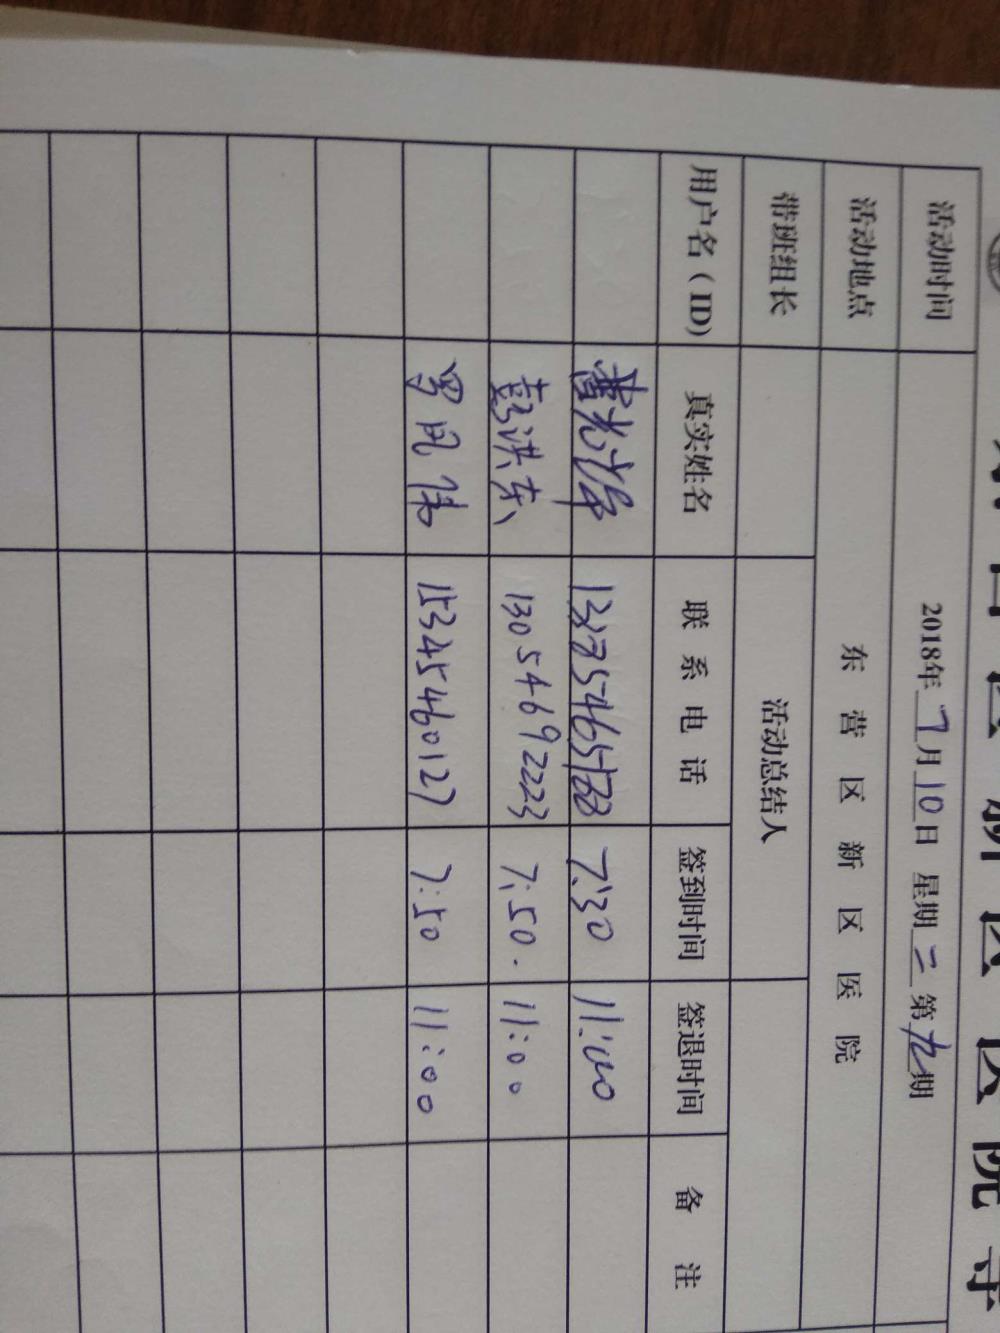 活动时间 2018年7月10日 星期二 第九期
活动地点 东营区新区医院
带班组长 活动总结人
用户名（ID） 真实姓名 联系电话 签到时间 签退时间 备注
7:30 11:00
彭洪东 13054692223 7:50. 11:00
罗凤伟 15345460127 7:50 11:00